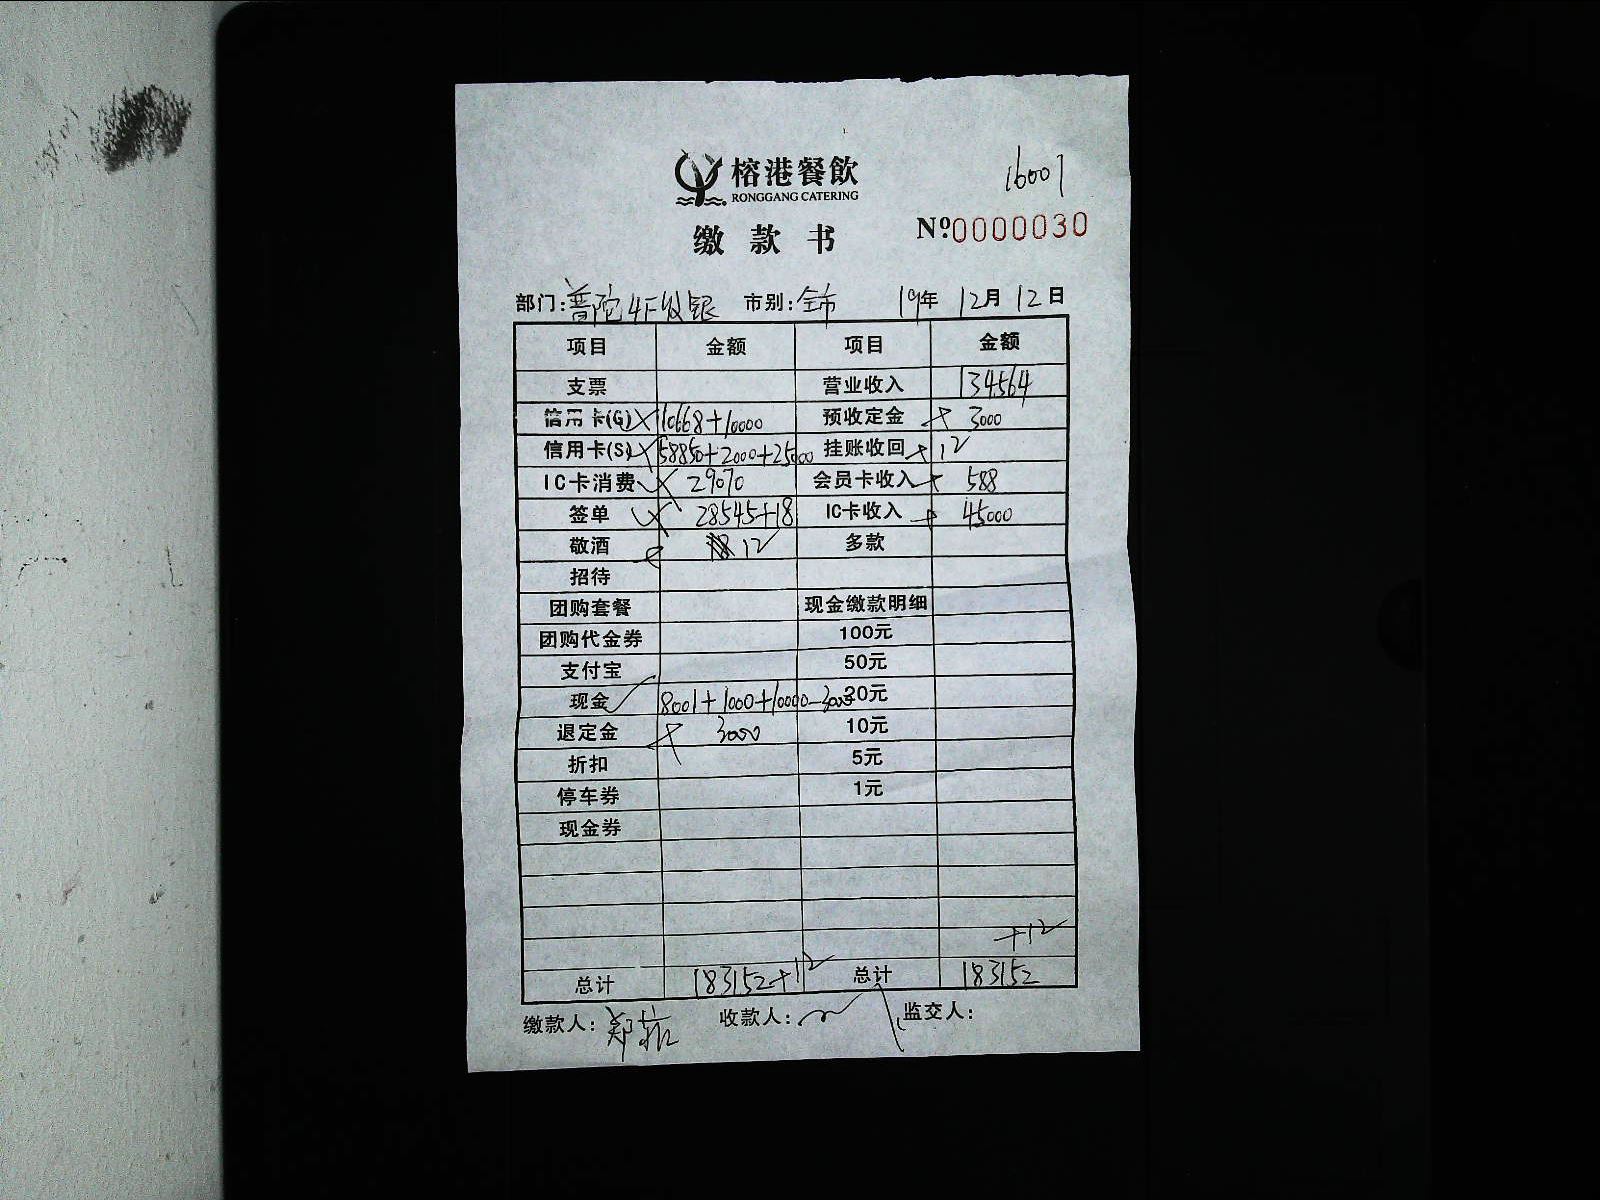 16001
榕港餐飲
RONGGANG CATERING
缴款书 №0000030
部门:普陀4F收银 市别:全市 19年12月12日
项目 金额 项目 金额
支票 营业收入 134564
信用卡(G) 10668+10000 预收定金 3000
信用卡(S) 58850+2000+25000 挂账收回 12
IC卡消费 29070 会员卡收入 588
签单 28545+18 IC卡收入 45000
敬酒 12 多款
招待
团购套餐 现金缴款明细
团购代金券 100元
支付宝 50元
现金 8001+1000+10000-3000 20元
退定金 3000 10元
折扣 5元
停车券 1元
现金券
+12
总计 183152+12 总计 183152
缴款人: 收款人: 监交人: